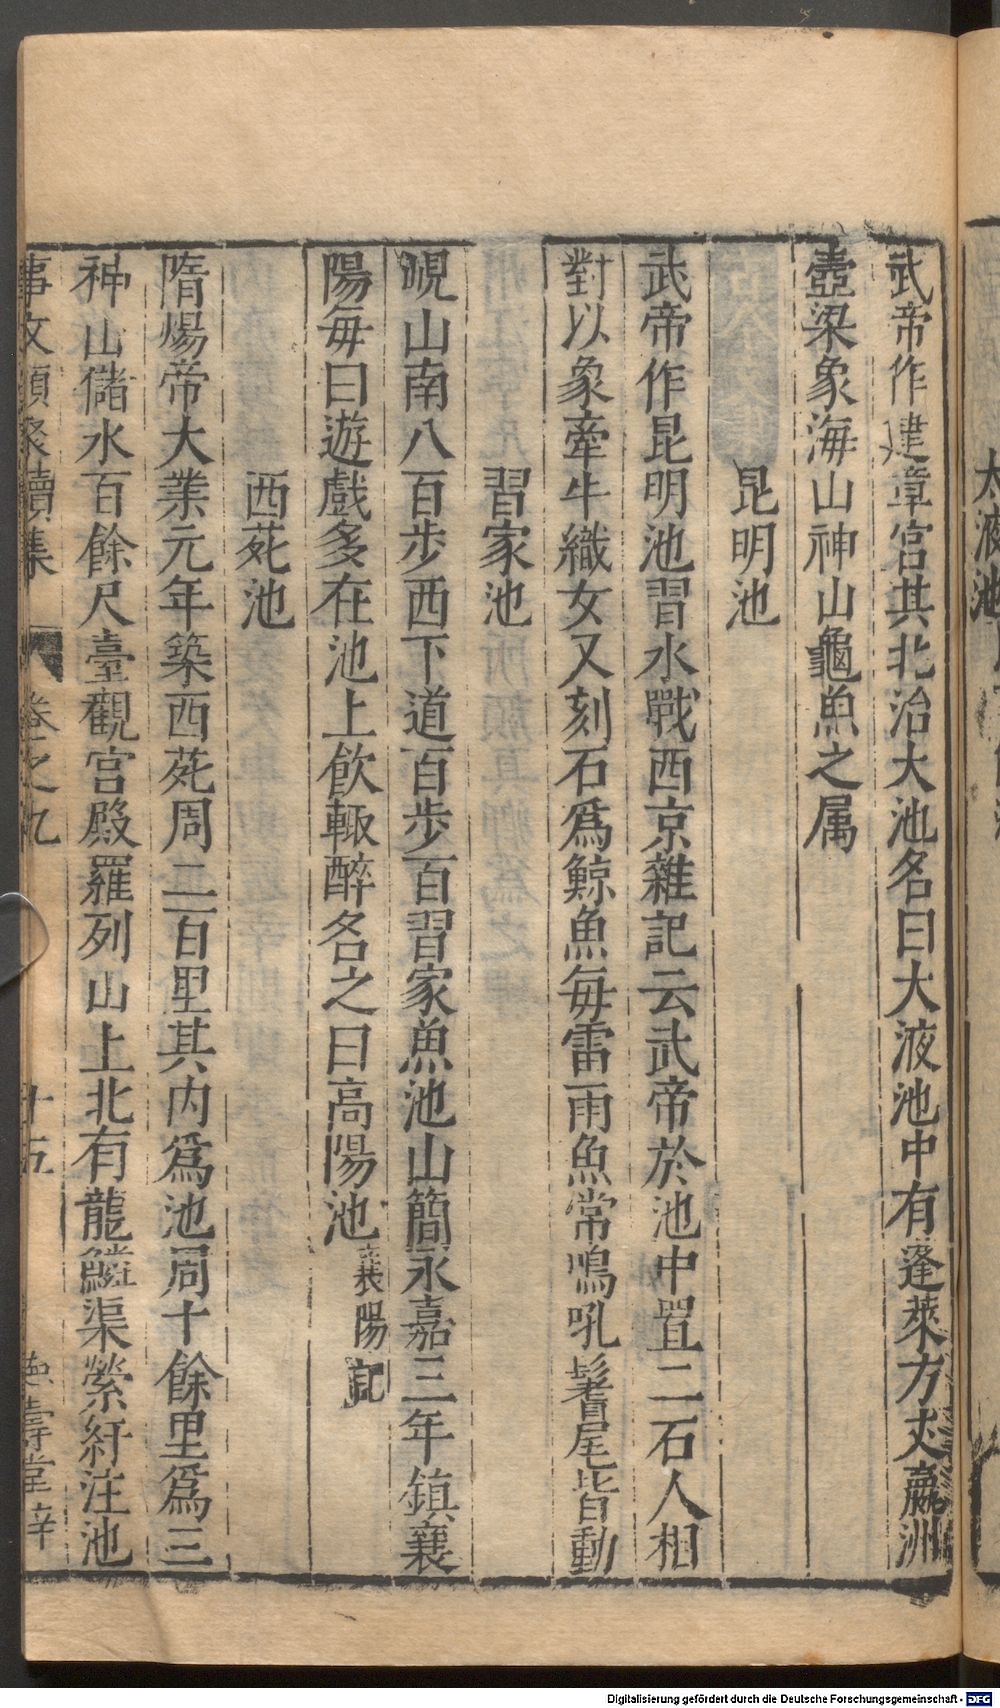 太液池
武帝作建章宮其北治大池名曰大液池中有蓬萊方丈瀛洲
壺梁象海山神山龜魚之属
昆明池
武帝作昆明池習水戰西京雜記云武帝於池中置二石人相
對以象牽牛織女又刻石爲鯨魚每雷雨魚常鳴吼鬐尾皆動
習家池
峴山南八百步西下道百步百習家魚池山簡永嘉三年鎮襄
陽每日遊戲多在池上飲輙醉名之曰高陽池襄陽記
西苑池
隋煬帝大業元年築西苑周二百里其内爲池周十餘里爲三
神山儲水百餘尺臺觀宮殿羅列山上北有龍鱗渠縈紆注池
事文類聚續集 卷之九 十五 壽堂梓
Digitalisierung gefördert durch die Deutsche Forschungsgemeinschaft - DFG